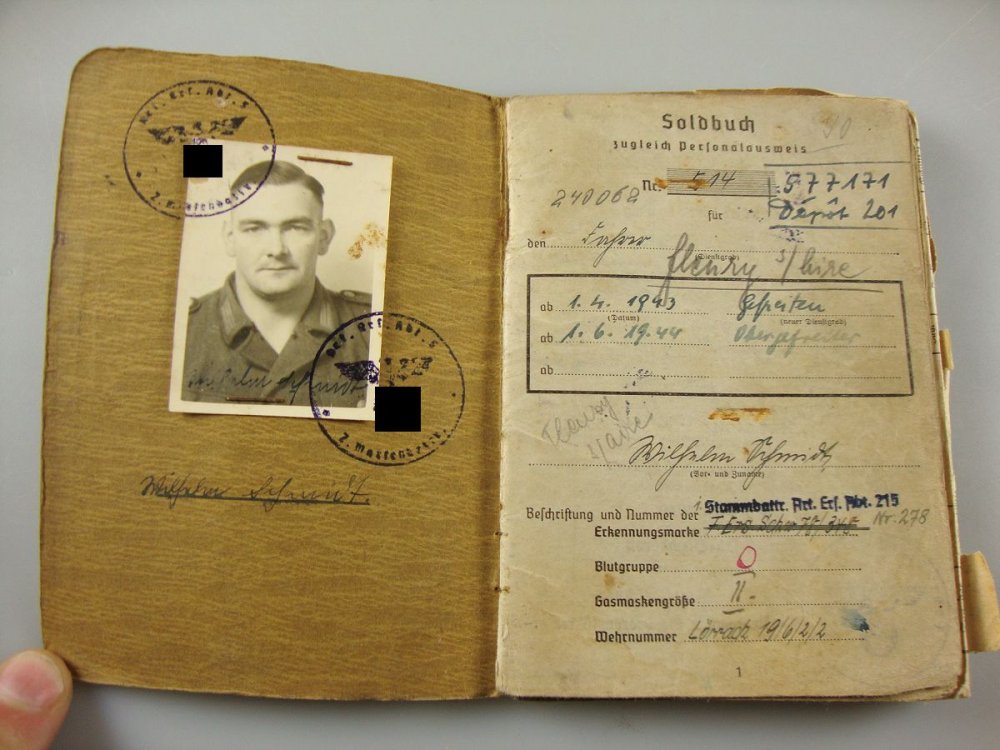 Art. Ers. Abt. 5
Wilhelm Schmidt
Art. Ers. Abt. 5
Wilhelm Schmidt.
Soldbuch
zugleich Personalausweis
Nr. 514
577171
240062
Dépôt 201
für
den Fahrer
(Dienstgrad)
fleury s/loire
ab 1.4.1943 Gefreiten
(Datum) (neuer Dienstgrad)
ab 1.6.1944 Obergefreiter
ab
Fleury
s/Loire
Wilhelm Schmidt
(Vor- und Zuname)
1. Stammbattr. Art. Ers. Abt. 215
Beschriftung und Nummer der
Erkennungsmarke
Nr. 278
Blutgruppe O
Gasmaskengröße II.
Wehrnummer Lörrach 19/6/2/2
1